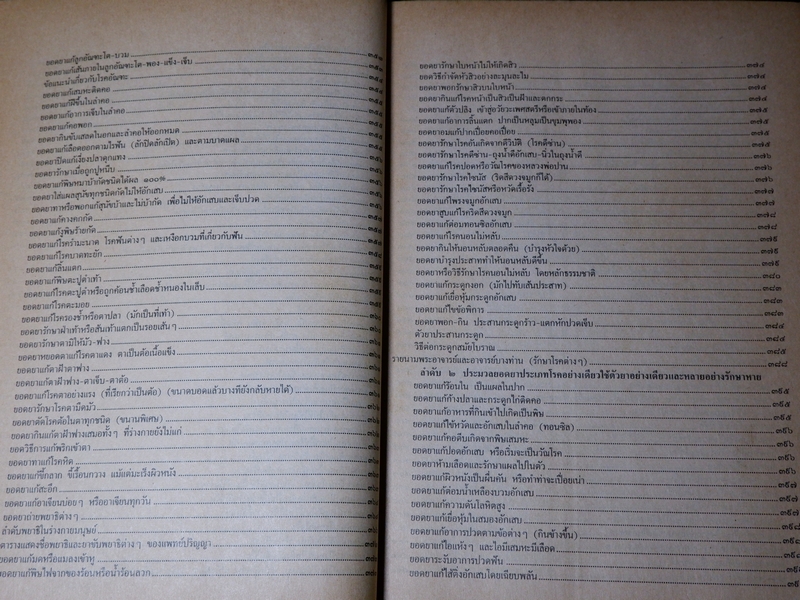 ยอดยาแก้ลูกอัณฑะโต-บวม
ยอดยาแก้เส้นภายในลูกอัณฑะโต-พอง-แข็ง-เจ็บ ๓๕๓
ข้อแนะนำเกี่ยวกับโรคอัณฑะ ๓๕๔
ยอดยาแก้เสมหะติดคอ
ยอดยาแก้ฝีขึ้นในลำคอ
ยอดยาแก้อาการเจ็บในลำคอ
ยอดยาแก้คอพอก
ยอดยากินขับเสลดในอกและลำคอให้ออกหมด
ยอดยาแก้เลือดออกตามไรฟัน (ลักปิดลักเปิด) และตามบาดแผล
ยอดยาปิดแก้เงี่ยงปลาดุกแทง
ยอดยารักษาเมื่อถูกปูหนีบ
ยอดยาแก้พิษหมาบ้ากัดชนิดได้ผล ๑๐๐%
ยอดยาใส่แผลสุนัขทุกชนิดกัดไม่ให้อักเสบ
ยอดยาทาหรือพอกแก้สุนัขบ้าและไม่บ้ากัด เพื่อไม่ให้อักเสบและเจ็บปวด
ยอดยาแก้คางคกกัด
ยอดยาแก้งูพิษร้ายกัด
ยอดยาแก้โรครำมะนาด โรคฟันต่างๆ และเหงือกบวมที่เกี่ยวกับฟัน
ยอดยาแก้โรคบาดทะยัก
ยอดยาแก้ลิ้นแตก
ยอดยาแก้พิษตะปูตำเท้า
ยอดยาแก้โรคตะปูตำหรือถูกค้อนช้ำเลือดช้ำหนองในเล็บ
ยอดยาแก้โรคตะมอย
ยอดยาแก้โรครองช้ำหรือตาปลา (มักเป็นที่เท้า)
ยอดยารักษาฝ่าเท้าหรือส้นเท้าแตกเป็นรอยเส้นๆ
ยอดยารักษาตามิให้มัว-ฟาง
ยอดยาหยอดตาแก้โรคตาแดง ตาเป็นต้อเนื้อแข็ง
ยอดยาแก้ตาฝ้าตาฟาง
ยอดยาแก้ตาฝ้าฟาง-ตาเจ็บ-ตาต้อ
ยอดยาแก้โรคตาอย่างแรง (ที่เรียกว่าเป็นต้อ) (ขนาดบอดแล้วบางทียังกลับหายได้)
ยอดยารักษาโรคตามืดมัว
ยอดยาตัดโรคต้อในตาทุกชนิด (ขนานพิเศษ)
ยอดยากินแก้ตาฝ้าฟางเสมอทั้งๆ ที่ร่างกายยังไม่แก่
ยอดวิธีการแก้พริกเข้าตา
ยอดยาทาแก้โรคหิด
ยอดยาแก้ขี้กลาก ขี้เรื้อนกวาง แม้แต่มะเร็งผิวหนัง
ยอดยาแก้สะอึก
ยอดยาแก้อาเจียนบ่อยๆ หรืออาเจียนทุกวัน
ยอดยาถ่ายพยาธิต่างๆ
ลำดับพยาธิในร่างกายมนุษย์
ตารางแสดงชื่อพยาธิและยาขับพยาธิต่างๆ ของแพทย์ปริญญา
ยอดยาแก้มดหรือแมลงเข้าหู
ยอดยาแก้พิษไฟจากของร้อนหรือน้ำร้อนลวก
ยอดยารักษาใบหน้าไม่ให้เกิดสิว ๓๗๔
ยอดวิธีกำจัดหัวสิวอย่างละมุนละไม ๓๗๔
ยอดยาพอกรักษาสิวบนใบหน้า ๓๗๔
ยอดยากินแก้โรคหน้าเป็นสิวเป็นฝ้าและตกกระ ๓๗๔
ยอดยาแก้ตัวปลิง เข้าสู่อวัยวะเพศสตรีหรือเข้าภายในท้อง ๓๗๕
ยอดยาแก้อาการลิ้นแตก ปากเป็นหลุมเป็นขุมพุพอง ๓๗๕
ยอดยาอมแก้ปากเปื่อยคอเปื่อย ๓๗๕
ยอดยารักษาโรคอันเกิดจากดีวิบัติ (โรคดีซ่าน) ๓๗๕
ยอดยารักษาโรคดีซ่าน-ถุงน้ำดีอักเสบ-นิ่วในถุงน้ำดี ๓๗๖
ยอดยาแก้โรคปอดหรือวัณโรคของหลวงพ่อปาน ๓๗๖
ยอดยารักษาโรคไซนัส (ริดสีดวงจมูกก็ได้) ๓๗๖
ยอดยารักษาโรคไซนัสหรือหวัดเรื้อรัง ๓๗๗
ยอดยาแก้โพรงจมูกอักเสบ ๓๗๗
ยอดยาสูบแก้โรคริดสีดวงจมูก ๓๗๘
ยอดยาแก้ต่อมทอนซิลอักเสบ ๓๗๘
ยอดยาแก้โรคนอนไม่หลับ ๓๗๙
ยอดยากินให้นอนหลับตลอดคืน (บำรุงหัวใจด้วย) ๓๗๙
ยอดยาบำรุงประสาททำให้นอนหลับดีขึ้น ๓๗๙
ยอดยาหรือวิธีรักษาโรคนอนไม่หลับ โดยหลักธรรมชาติ ๓๘๐
ยอดยาแก้กระดูกงอก (มักไปทับเส้นประสาท) ๓๘๓
ยอดยาแก้เยื่อหุ้มกระดูกอักเสบ ๓๘๓
ยอดยาแก้ไขข้อพิการ ๓๘๓
ยอดยาพอก-กิน ประสานกระดูกร้าว-แตกหักปวดเจ็บ ๓๘๔
ตัวยาประสานกระดูก ๓๘๔
วิธีต่อกระดูกสมัยโบราณ ๓๘๕
รายนามพระอาจารย์และอาจารย์บางท่าน (รักษาโรคต่างๆ) ๓๘๘
ลำดับ ๒ ประมวลยอดยาประเภทโรคอย่างเดียวใช้ตัวยาอย่างเดียวและหลายอย่างรักษาหาย
ยอดยาแก้ร้อนใน เป็นแผลในปาก ๓๙๕
ยอดยาแก้ก้างปลาและกระดูกไก่ติดคอ ๓๙๕
ยอดยาแก้อาหารที่กินเข้าไปเกิดเป็นพิษ ๓๙๕
ยอดยาแก้ไข้หวัดและอักเสบในลำคอ (ทอนซิล) ๓๙๖
ยอดยาแก้คอตีบเกิดจากพิษเสมหะ ๓๙๖
ยอดยาแก้ปอดอักเสบ หรือเริ่มจะเป็นวัณโรค ๓๙๖
ยอดยาห้ามเลือดและรักษาแผลไปในตัว ๓๙๖
ยอดยาแก้ผิวหนังเป็นผื่นคัน หรือทำท่าจะเปื่อยเน่า ๓๙๗
ยอดยาแก้ต่อมน้ำเหลืองบวมอักเสบ ๓๙๗
ยอดยาแก้ความดันโลหิตสูง ๓๙๗
ยอดยาแก้เยื่อหุ้มในสมองอักเสบ ๓๙๘
ยอดยาแก้อาการปวดตามข้อต่างๆ (กินข้างขึ้น)
ยอดยาแก้ไอแห้งๆ และไอมีเสมหะมีเลือด
ยอดยาระงับอาการปวดฟัน
ยอดยาแก้ไส้ติ่งอักเสบโดยเฉียบพลัน